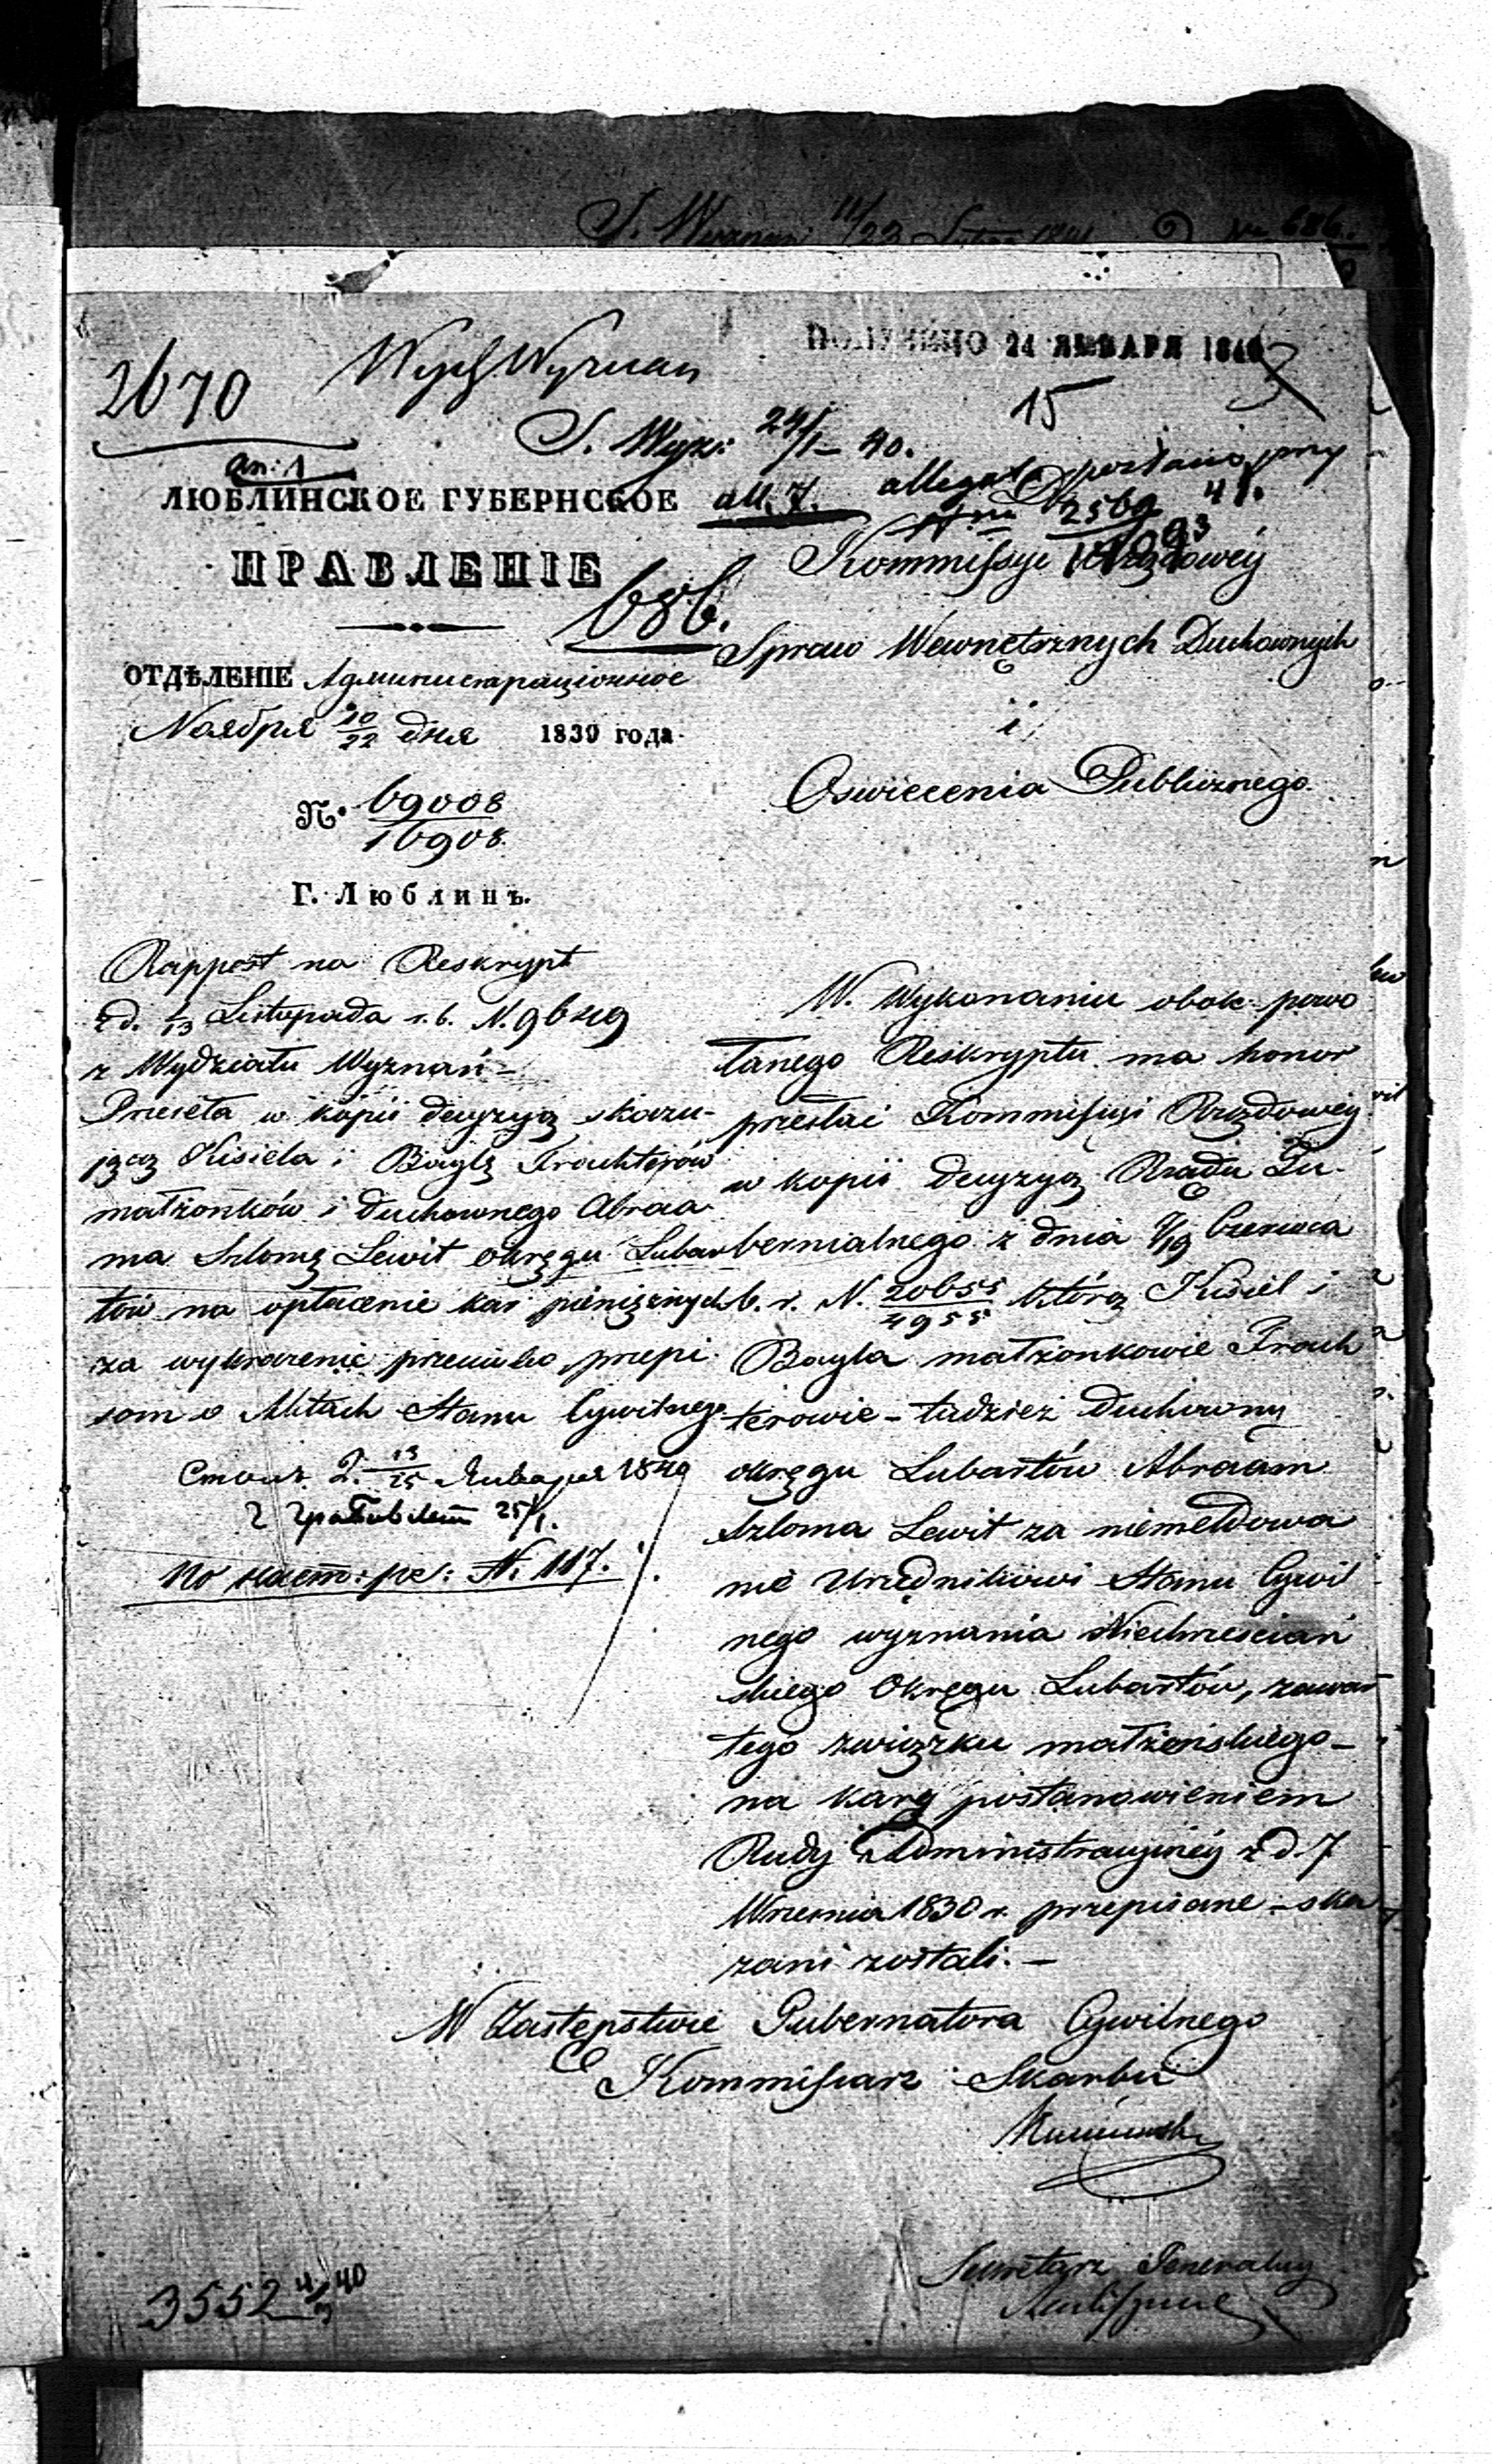 S. Wyznań 11/23 No 686.
2670
Wydz Wyznań
ПОЛУЧЕНО 24 ЯНВАРЯ 1840
15
S. Wyzn: 24/1 40.
an: 1
all. 7.
allegat
2569
ЛЮБЛИНСКОЕ ГУБЕРНСКОЕ
ПРАВЛЕНІЕ
686.
ОТДѢЛЕНІЕ Администраціонное
Ноября 10/22 дня 1839 года
N. 69008/16908.
Г. Люблинъ.
Kommissyi Rządowéy
Spraw Wewnętrznych Duchownych
i
Oswiecenia Publicznego.
Rapport na Reskrypt
z d. 1/13 Listopada r. b. N. 9649
z Wydziału Wyznań –
Przesęła w kopii decyzyą skazu-
jącą Kisiela i Baylę Trachterów
małżonków i duchownego Abraa
ma Szlomę Lewit okręgu Lubar
tów na opłacenie kar pieniężnych
za wykroczenie przeciwko przepi
som o Aktach Stanu Cywilnego
13/25 Января 1840
25/1.
по наст: рег: N. 117.
W Wykonaniu obok powo
łanego Reskryptu ma honor
przesłać Kommissyi Rządowéy
w kopii decyzyą Rządu Gu-
bernialnego z dnia 7/19 Czerwca
b. r. N. 20655/4955 którą Kisiel i
Bayla małżonkowie Trach
terowie – tudzież duchowny
okręgu Lubartów Abraam
Szloma Lewit za niemeldowa
nie Urzędnikowi Stanu Cywil
nego wyznania Niechrześciań
skiego Okręgu Lubartów, zawar
tego związku małżeńskiego –
na kary postanowieniem
Rady Administracyjnéy z d. 7
Września 1830 r. przepisane – ska
zani zostali. –
W Zastępstwie Gubernatora Cywilnego
Kommissarz Skarbu
Sekretarz Generalny
3552 4/3 40